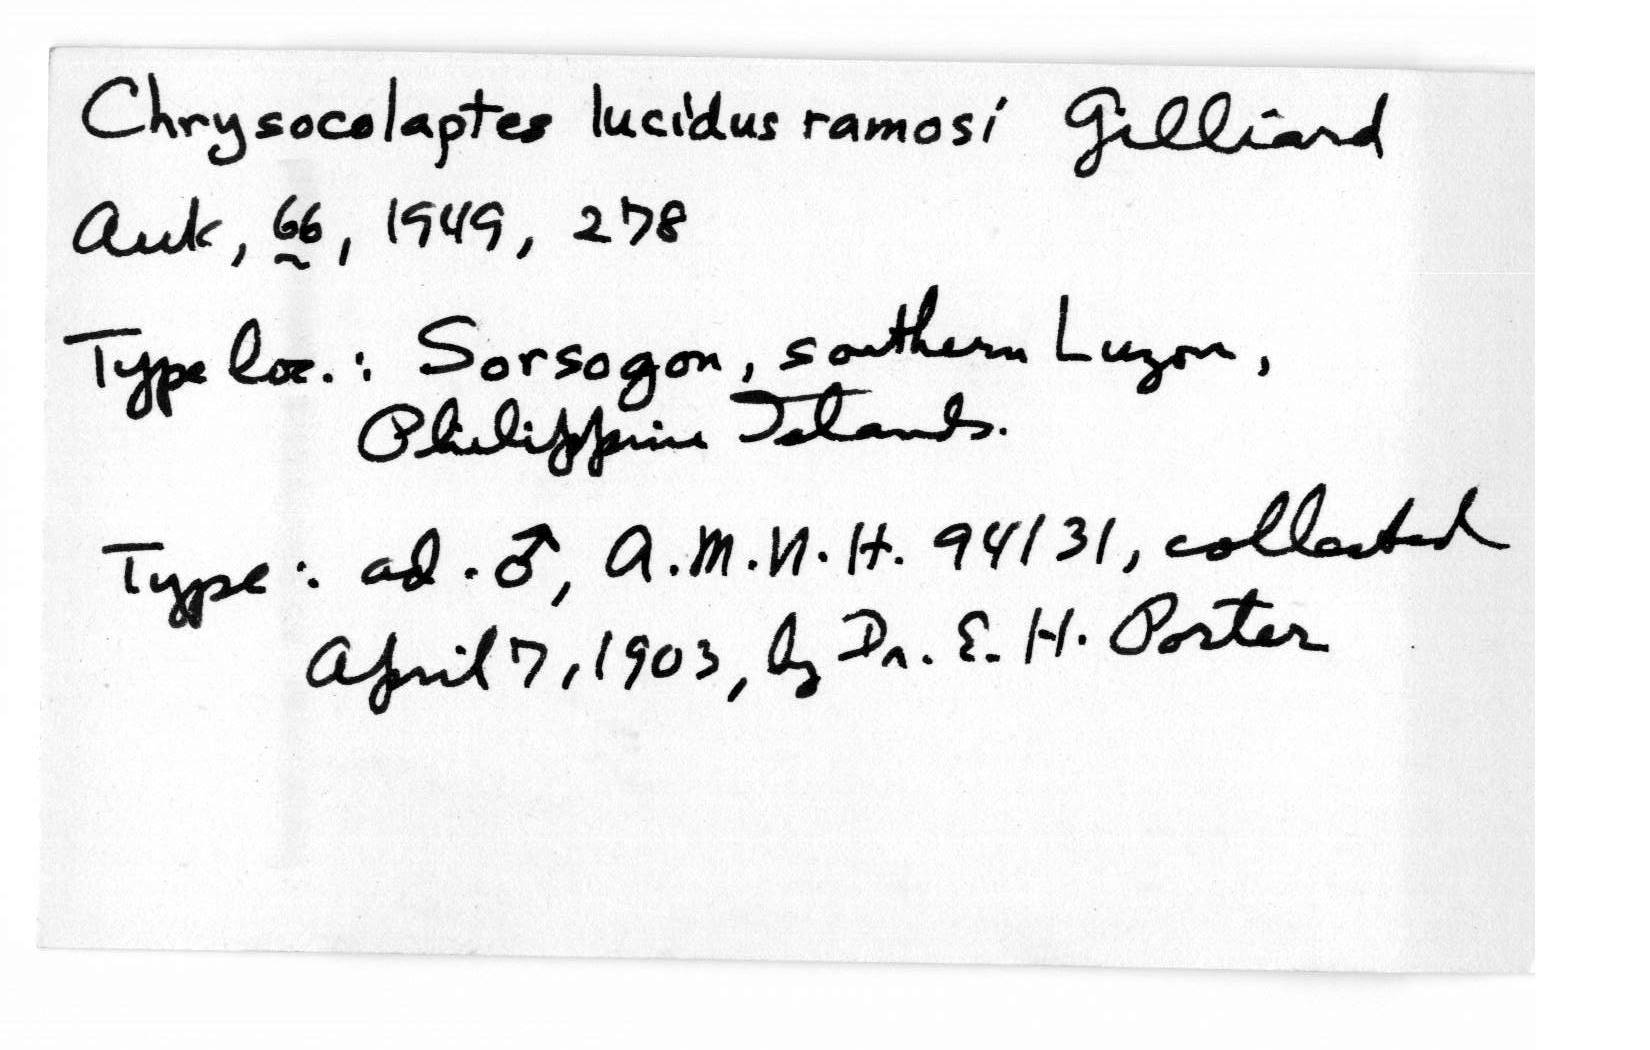 Chrysocolaptes lucidus ramosi Gilliard
Auk, 66, 1949, 278
Type loc.: Sorsogon, southern Luzon,
Philippine Islands.
Type: ad. ♂, A.M.N.H. 94131, collected
April 7, 1903, by Dr. E. H. Porter